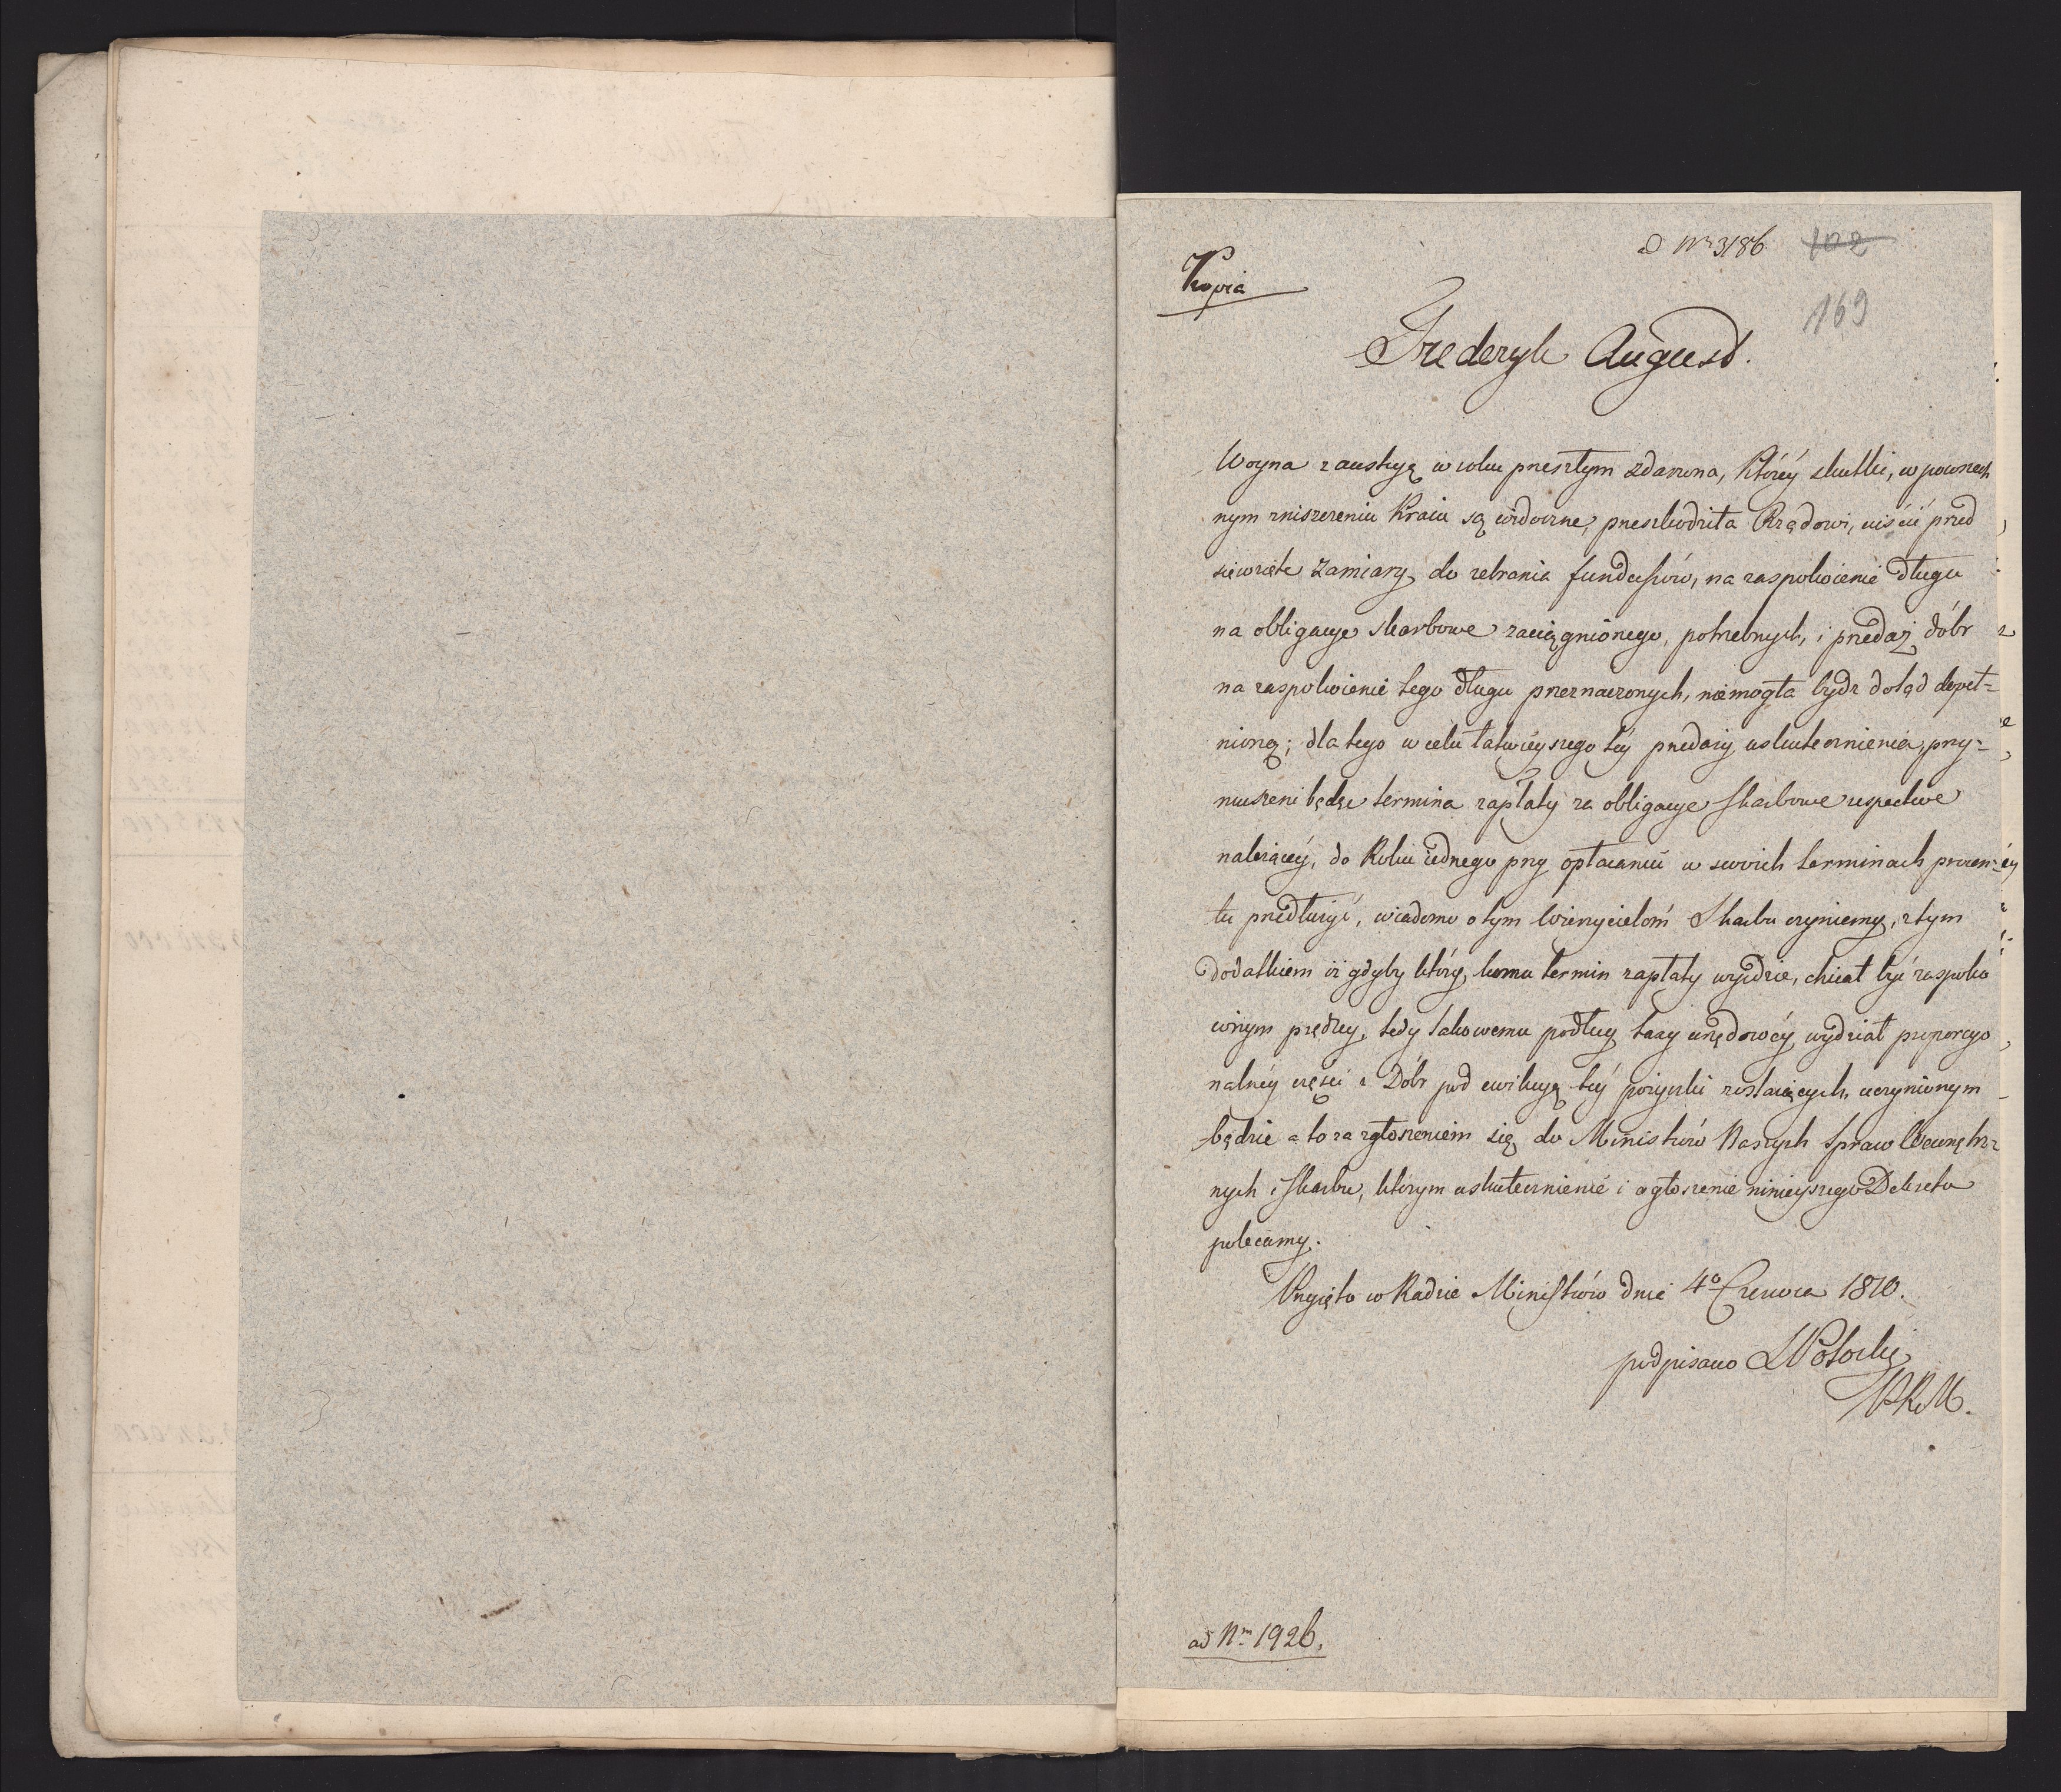 D Nr 3186 102
169
Kopia
Frederyk August.
Woyna z austryą w roku przeszłym zdarzona, któréy skutki, w powszech
nym zniszczeniu Kraiu są widoczne, przeszkodziła Rządowi, uiścić przed
sięwzięte zamiary, do zebrania funduszów, na zaspokoienie długu
na obligacye skarbowe zaciągnionego, potrzebnych, i przedaż dóbr
na zaspokoienie tego długu przeznaczonych, niemogła bydz dotąd dopeł=
nioną; dla tego w celu łatwiéyszego téy przedaży uskutecznienia, przy=
muszeni będąc termina zapłaty za obligacye skarbowe respective
należącéy, do Roku iednego przy opłacaniu w swoich terminach procen=
tu przedłużyć, wiadomo o tym Wierzycielom Skarbu czyniemy, z tym
dodatkiem iż gdyby który, komu termin zapłaty wyidzie, chciał być zaspoko
ionym prędzey, tedy takowemu podług taxy urzędowéy wydział proporcyo
nalnéy części z Dóbr pod ewikcyą téy pożyczki zostaiących, uczynionym
będzie a to za zgłoszeniem się do Ministrów Naszych Spraw Wewnętrz
nych i Skarbu, którym uskutecznienie i ogłoszenie ninieyszego Dekretu
polecamy.
Przyięto w Radzie Ministrów dnia 4o Czerwca 1810.
podpisano S Potocki
P R M.
ad Nm 1926.